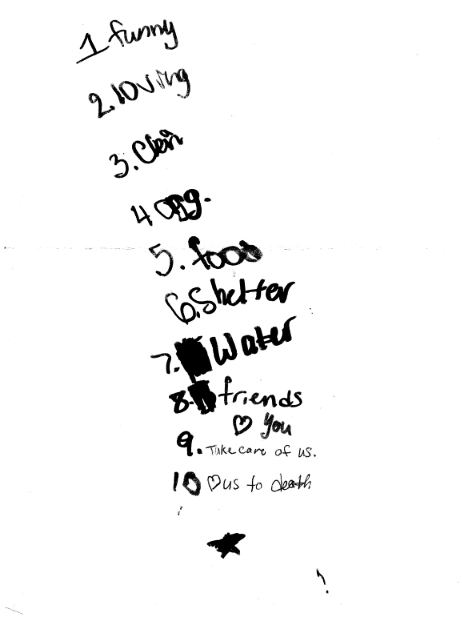 1 funny
2. loving
3. Clen
4
5. food
6. Shelter
7. Water
8. friends
♡ You
9. Take care of us.
10 ♡ us to death